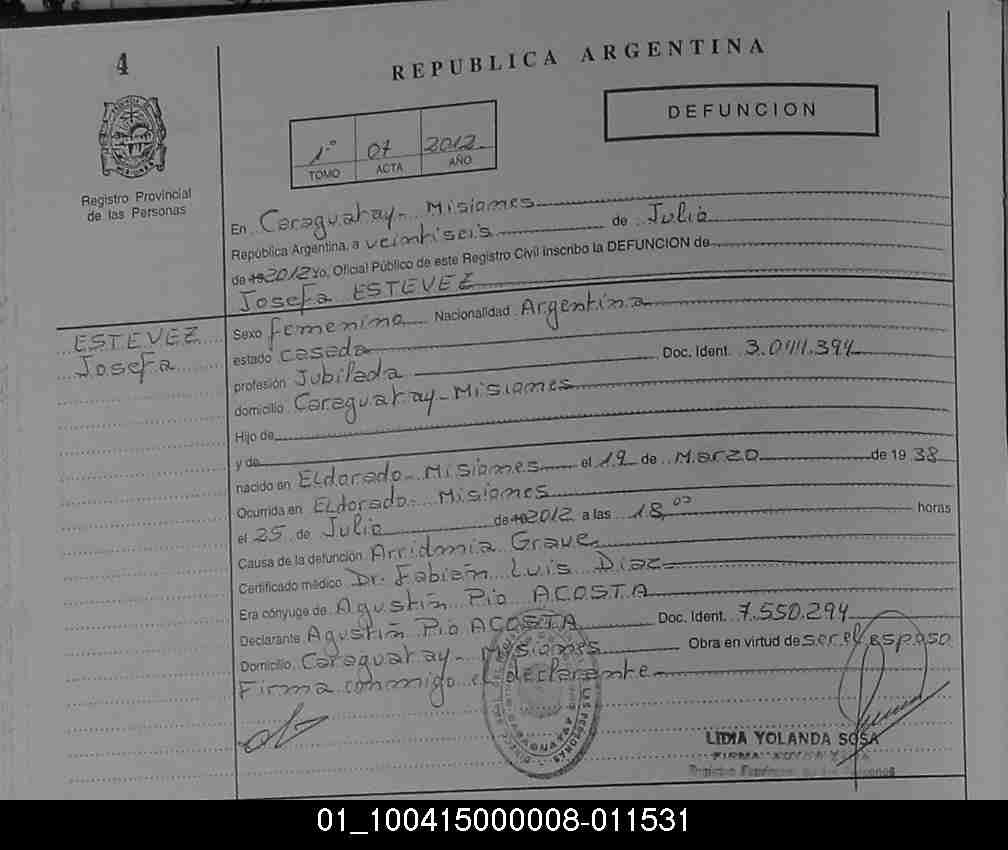 4
REPUBLICA ARGENTINA
DEFUNCION
1º 07 2012
TOMO ACTA AÑO
Registro Provincial
de las Personas
En Caraguatay - Misiones
República Argentina, a veintiseis de Julio
de 19 2012 Yo, Oficial Público de este Registro Civil inscribo la DEFUNCION de
Josefa ESTEVEZ
ESTEVEZ
Josefa
Sexo femenino Nacionalidad Argentina
estado casada
profesión Jubilada Doc. Ident. 3.044.394
domicilio Caraguatay - Misiones
Hijo de
y de
nacido en Eldorado - Misiones el 19 de Marzo de 19 38
Ocurrida en Eldorado - Misiones
el 25 de Julio de 19 2012 a las 18,00 horas
Causa de la defunción Arridmia Grave
Certificado médico Dr. Fabián Luis Diaz
Era cónyuge de Agustín Pío ACOSTA
Declarante Agustín Pío ACOSTA Doc. Ident. 7.550.294
Domicilio Caraguatay - Misiones Obra en virtud de ser el esposo
Firma conmigo el declarante
LIDIA YOLANDA SOSA
01_100415000008-011531